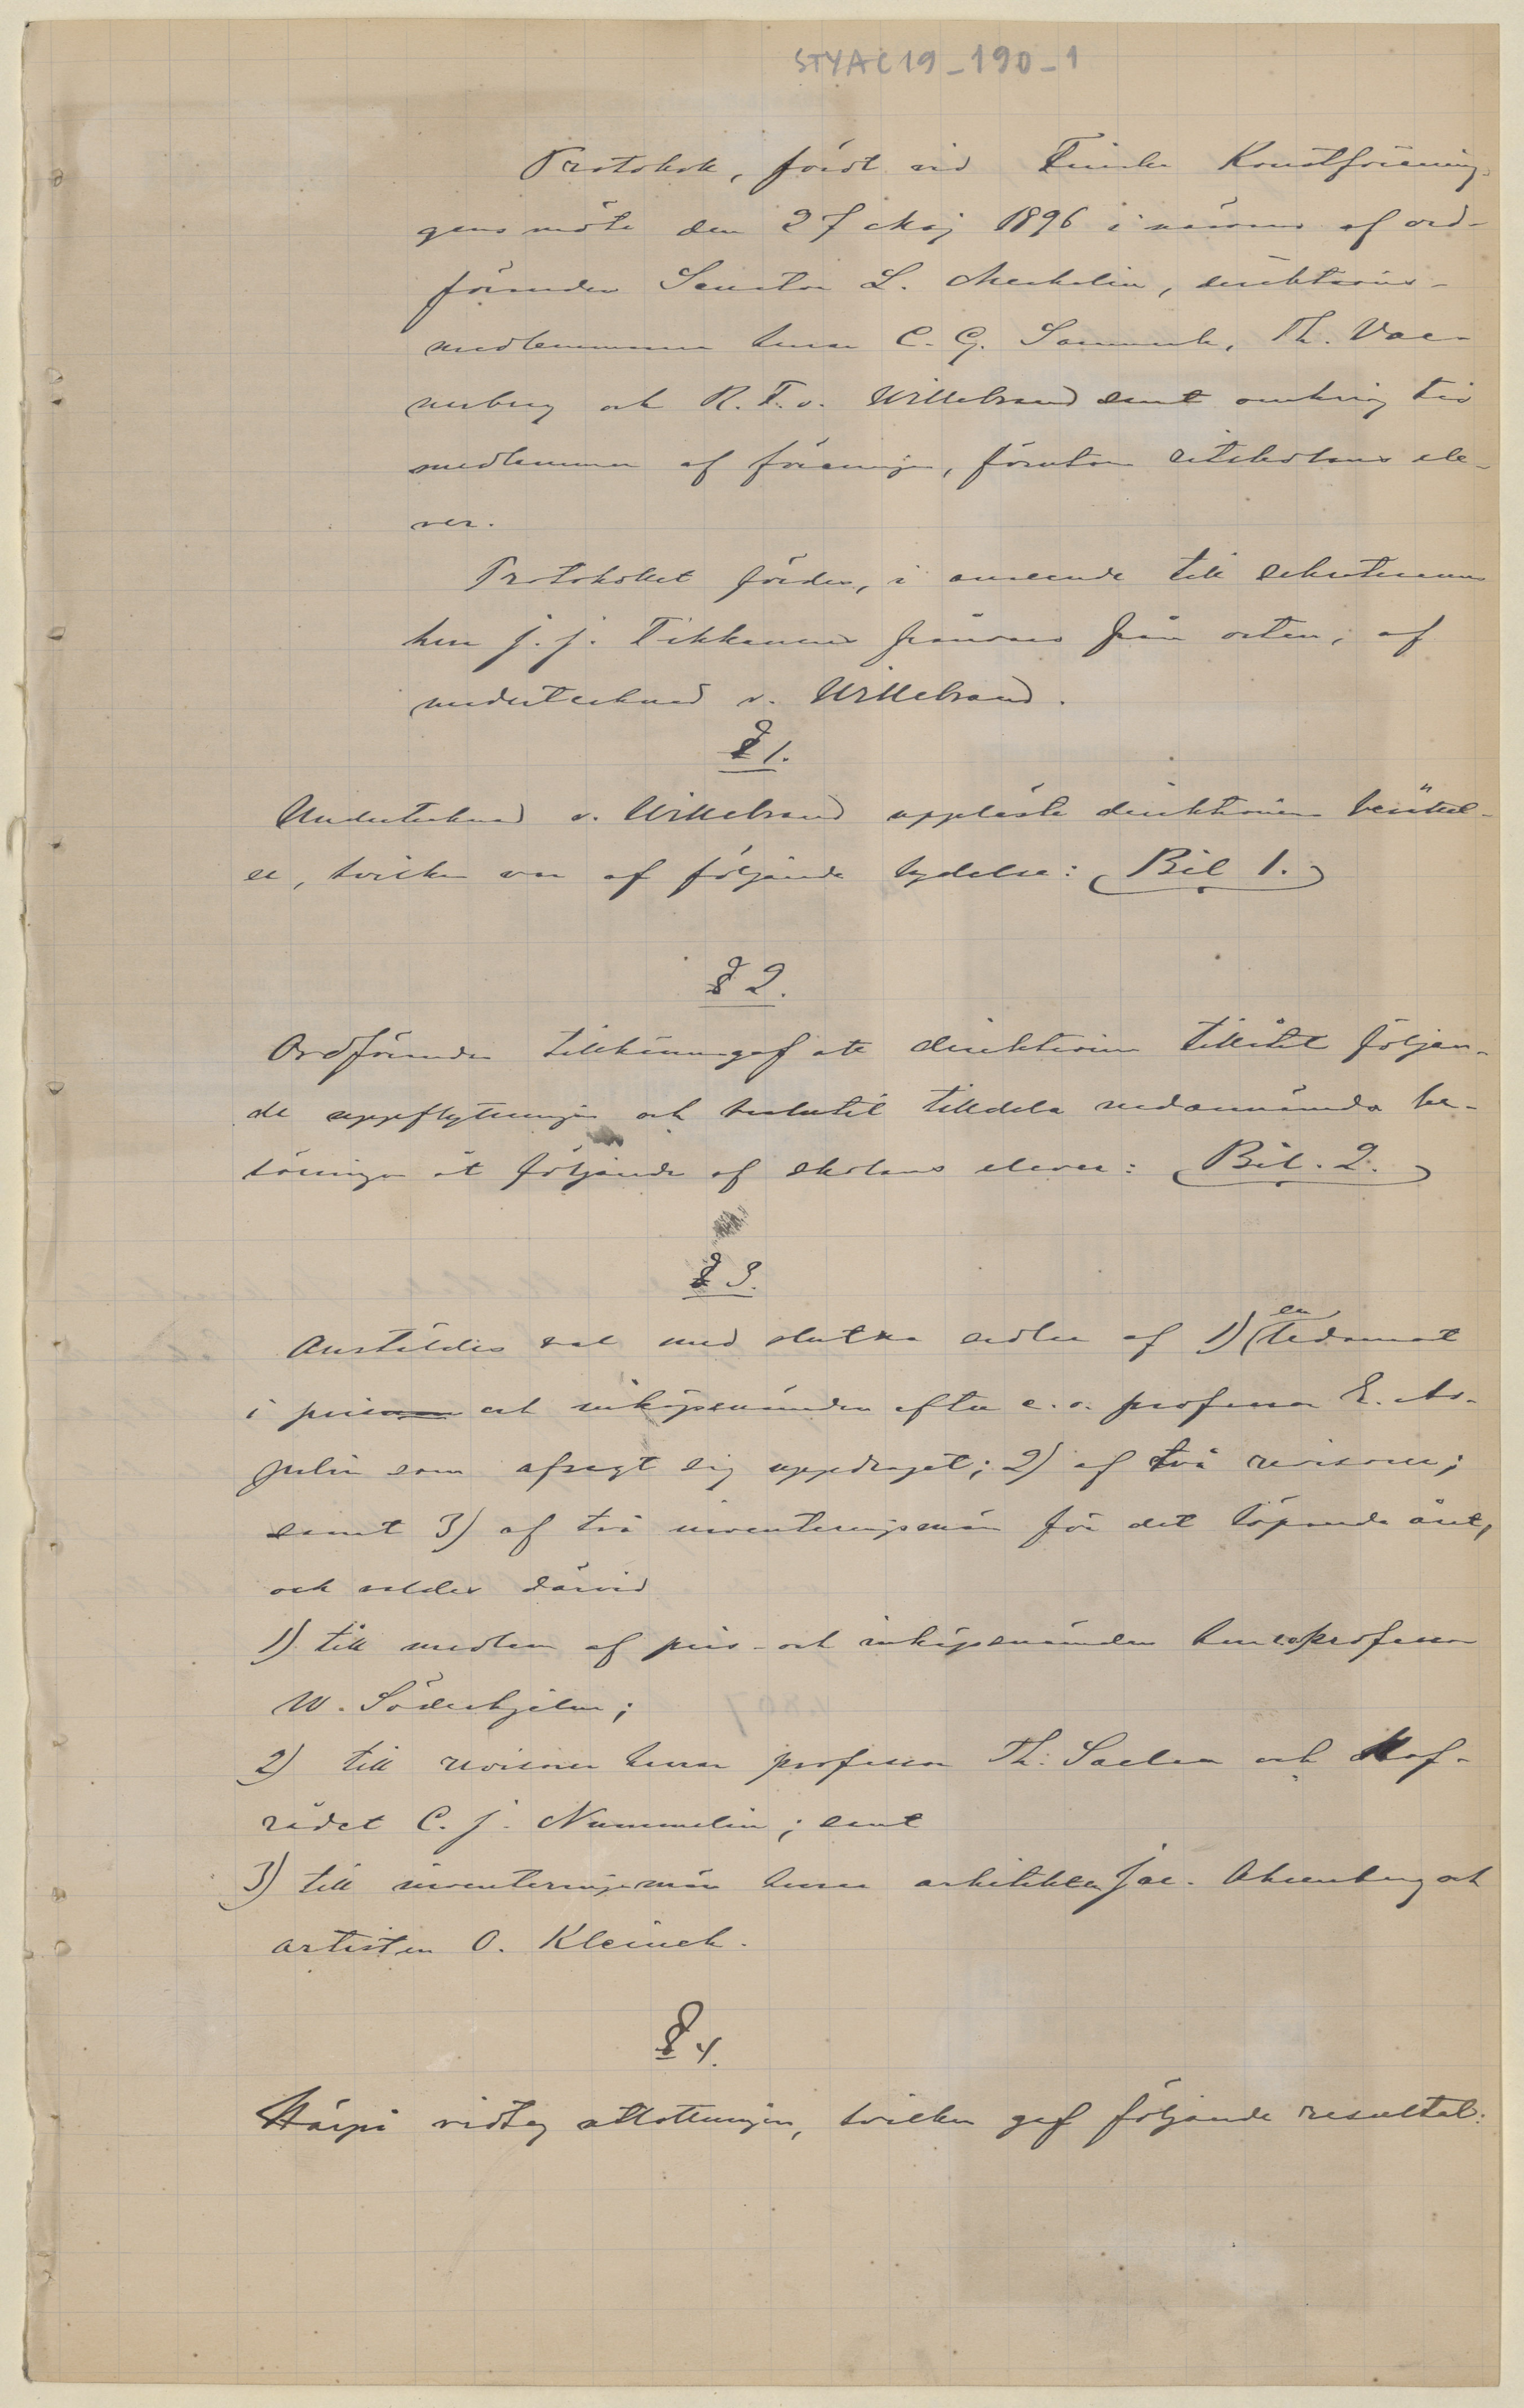 STYAC19-190-1
Protokoll, fördt vid Finska Konstförenin-
gens möte den 27 Maj 1896 i närvaro af ord-
föranden Senator L. Mechelin, direktions-
medlemmarne herrar C. G. Sanmark, Th. Wae-
nerberg och R. F. v. Willebrand samt omkring tio
medlemmar af föreningen, förutom ritskolans ele-
ver.
Protokollet fördes, i anseende till sekreteraren
herr J. J. Tikkanens frånvaro från orten, af
undertecknad v. Willebrand.
§ 1.
Undertecknad v. Willebrand uppläste direktionens berättel-
se, hvilken var af följande lydelse: (Bil 1.)
§ 2.
Ordföranden tillkännagaf att direktionen tillåtit följan-
de uppflyttningar och beslutit tilldela nedannämnda be-
löningar åt följande af skolans elever: (Bil. 2.)
§ 3.
Anstäldes val med slutna sedlar af 1) en ledamot
i pris och inköpsnämnden efter e. o. professor E. As-
pelin som afsagt sig uppdraget; 2) af två revisorer;
samt 3) af två inventeringsmän för det löpande året,
och valdes därvid
1) till medlem af pris- och inköpsnämnden herr e.o. professor
W. Söderhjelm;
2) till revisorer herrar professor Th. Saelan och Hof-
rådet C. J. Nummelin; samt
3) till inventeringsmän herrar arkitekten Jac. Ahrenberg och
artisten O. Kleineh.
§ 4.
Härpå vidtog utlottningen, hvilken gaf följande resultat: